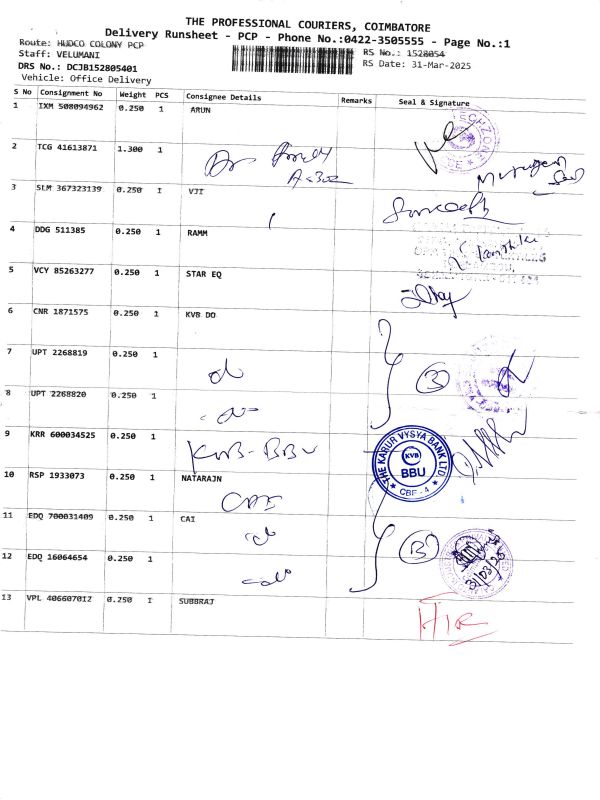 THE PROFESSIONAL COURIERS, COIMBATORE
Delivery Runsheet - PCP - Phone No.:0422-3505555 - Page No.:1
Route: HUDCO COLONY PCP
RS No.: 1528054
Staff: VELUMANI
RS Date: 31-Mar-2025
DRS No.: DCJB152805401
Vehicle: Office Delivery
S No Consignment No Weight PCS Consignee Details Remarks Seal & Signature
1 IXM 508094962 0.250 1 ARUN
2 TCG 41613871 1.300 1
Murugan
3 SLM 367323139 0.250 1 VJI
4 DDG 511385 0.250 1 RAMM
5 VCY 85263277 0.250 1 STAR EQ
6 CNR 1871575 0.250 1 KVB DO
7 UPT 2268819 0.250 1
do
3
8 UPT 2268820 0.250 1
-do-
9 KRR 600034525 0.250 1
KVB-BBU
THE KARUR VYSYA BANK LTD.
KVB
BBU
CBE - 4
10 RSP 1933073 0.250 1 NATARAJN
11 EDQ 700031409 0.250 1 CAI
do
3
12 EDQ 16064654 0.250 1
-do-
31/03/25
13 VPL 406607012 0.250 1 SUBBRAJ